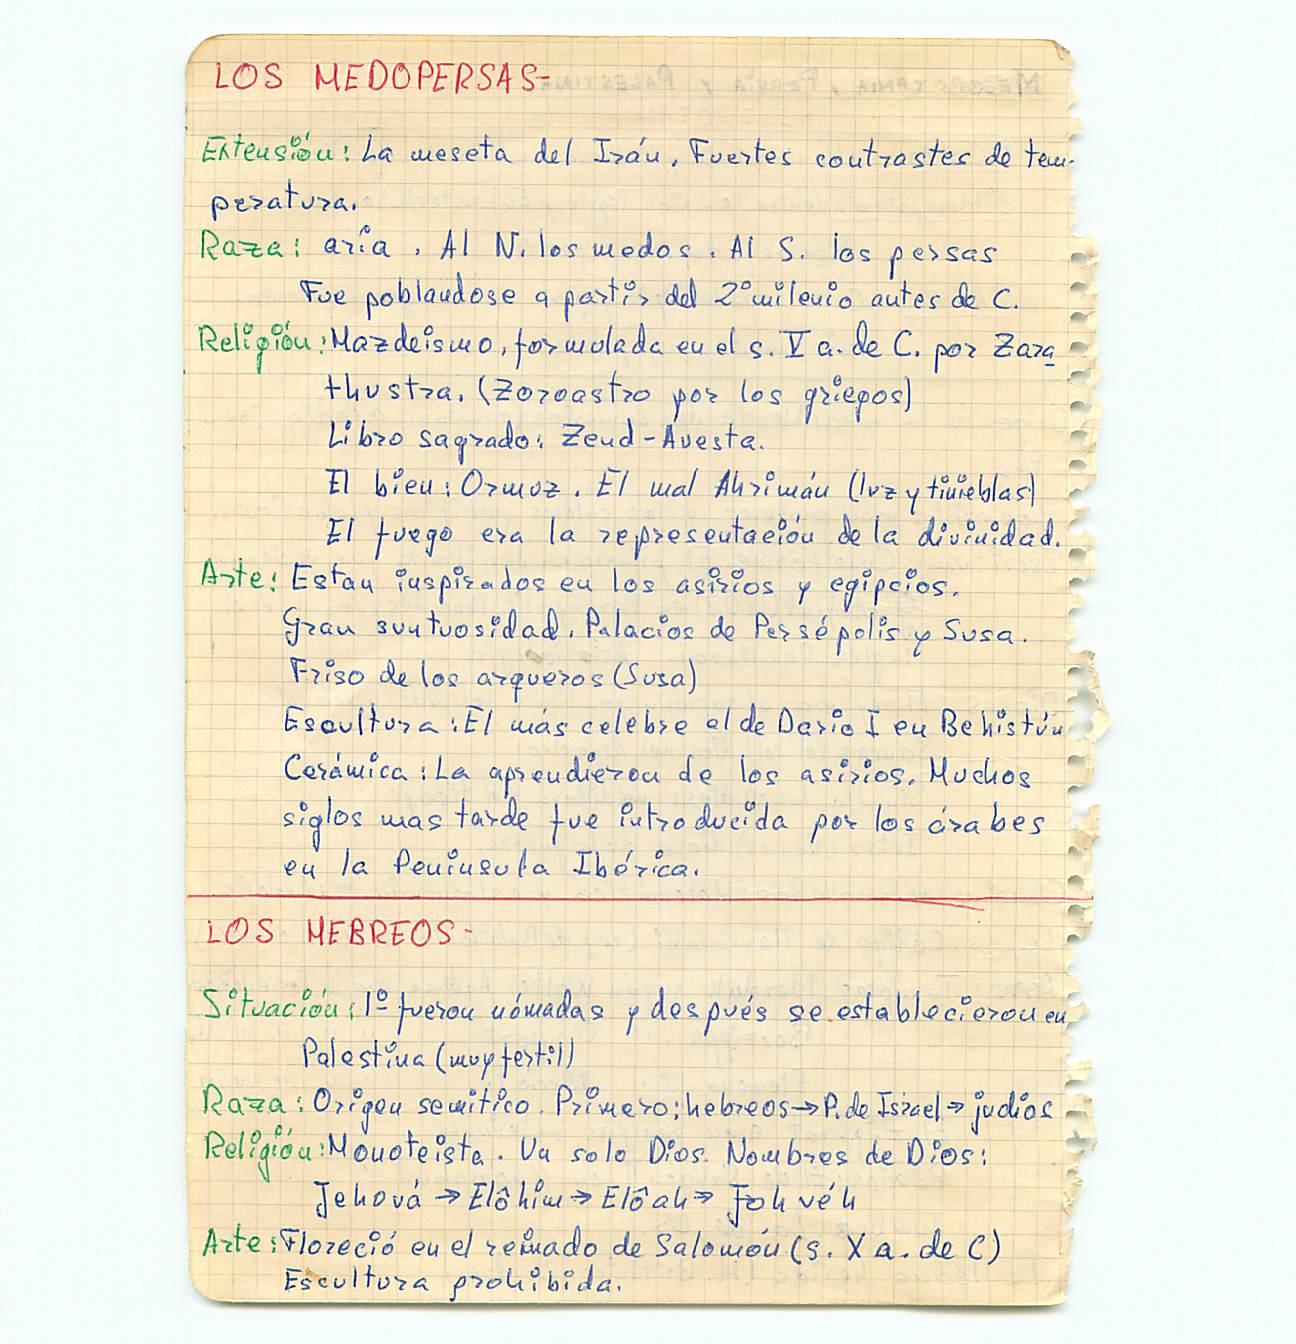 LOS MEDOPERSAS-
Extensión: La meseta del Irán. Fuertes contrastes de tem-
peratura.
Raza: aria. Al N. los medos. Al S. los persas
Fue poblandose a partir del 2º milenio antes de C.
Religión: Mazdeismo, formulada en el s. V a. de C. por Zara
thustra. (Zoroastro por los griegos)
Libro sagrado: Zend-Avesta.
El bien: Ormuz. El mal Ahrimán (luz y tinieblas)
El fuego era la representación de la divinidad.
Arte: Estan inspirados en los asirios y egipcios.
Gran suntuosidad. Palacios de Persépolis y Susa.
Friso de los arqueros (Susa)
Escultura: El más celebre el de Dario I en Behistún
Cerámica: La aprendieron de los asirios. Muchos
siglos mas tarde fue introducida por los árabes
en la Peninsula Ibérica.
LOS HEBREOS-
Situación: 1º fueron nómadas y después se establecieron en
Palestina (muy fertil)
Raza: Origen semitico. Primero: hebreos → P. de Israel → judios
Religión: Monoteista. Un solo Dios. Nombres de Dios:
Jehová → Elôhim → Elôah → Johvéh
Arte: Floreció en el reinado de Salomón (s. X a. de C)
Escultura prohibida.